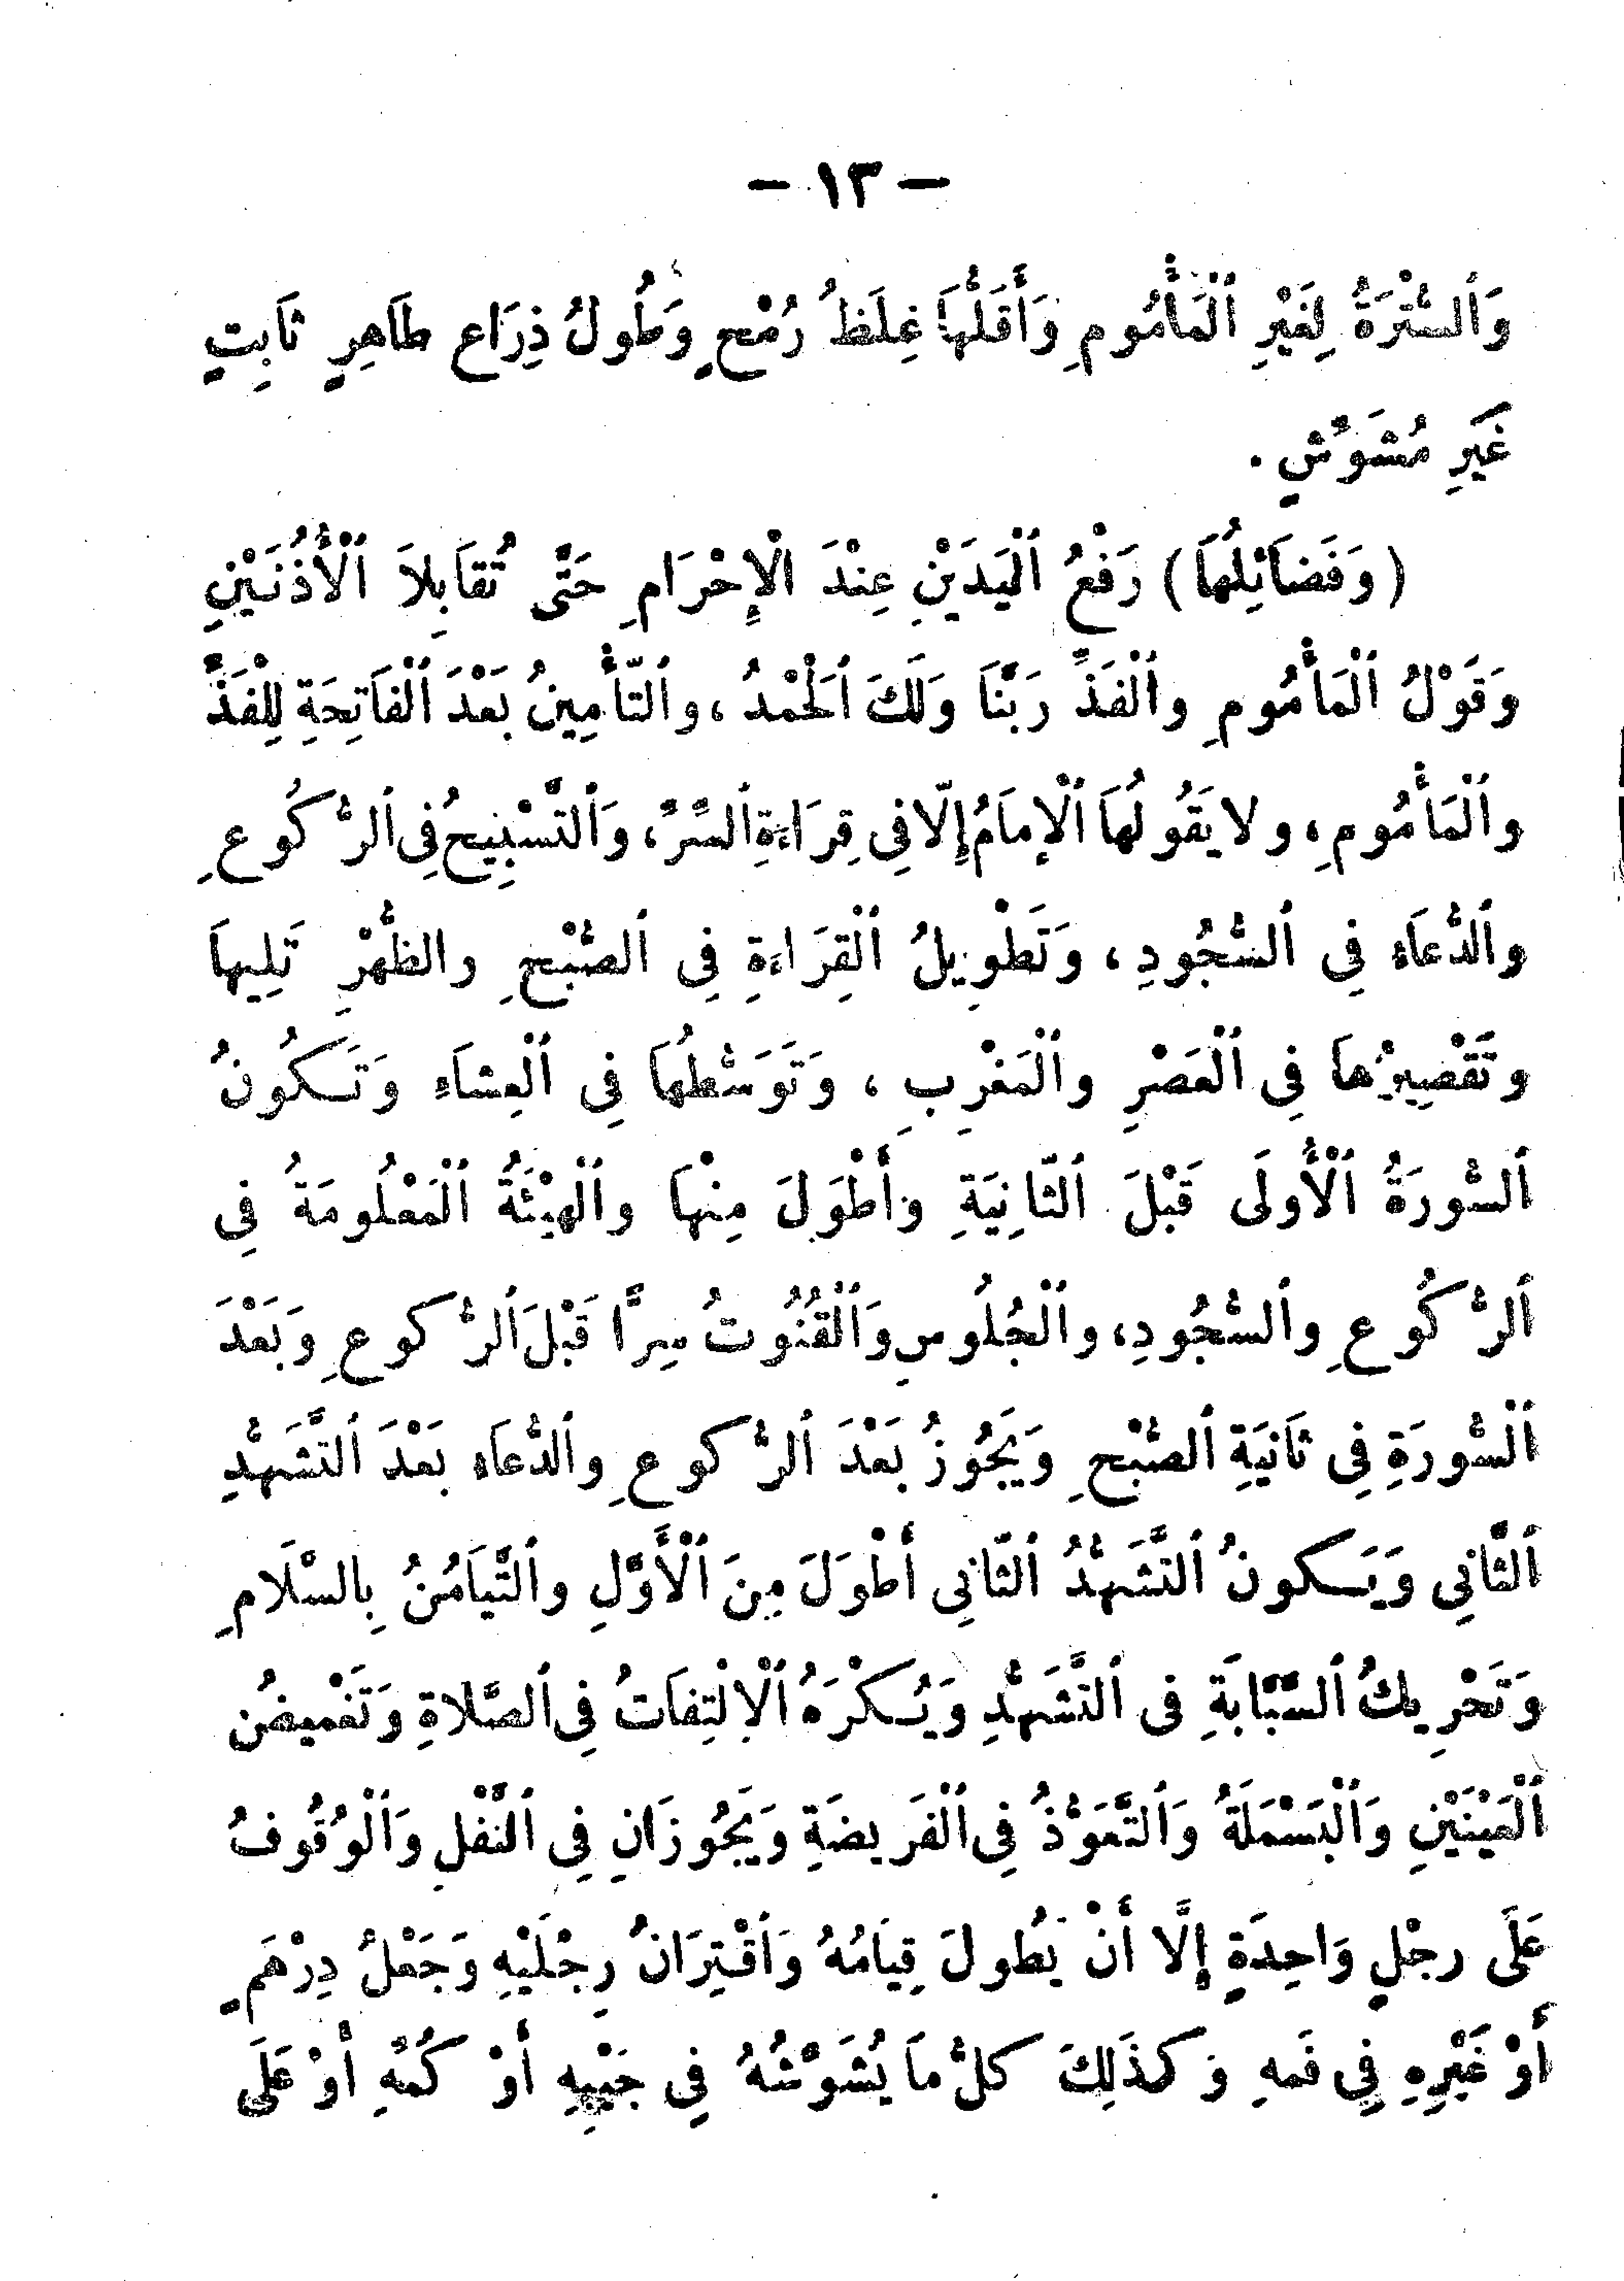 — ١٣ —
وَٱلسُّتْرَةُ لِغَيْرِ ٱلْمَأْمُومِ وَأَقَلُّهَا غِلَظُ رُمْحٍ وَطُولُ ذِرَاعٍ طَاهِرٍ ثَابِتٍ
غَيْرِ مُشَوِّشٍ .
(وَفَضَائِلُهَا) رَفْعُ ٱلْيَدَيْنِ عِنْدَ الْإِحْرَامِ حَتَّى تُقَابِلَا ٱلْأُذُنَيْنِ
وَقَوْلُ ٱلْمَأْمُومِ وٱلْفَذِّ رَبَّنَا وَلَكَ ٱلْحَمْدُ ، وٱلتَّأْمِينُ بَعْدَ ٱلْفَاتِحَةِ لِلْفَذِّ
وٱلْمَأْمُومِ، ولا يَقُولُهَا ٱلْإمَامُ إِلّا فِى قِرَاءَةِ ٱلسِّرِّ، وَٱلتَّسْبِيحُ فِى ٱلرُّكُوعِ
وٱلدُّعَاء فِى ٱلسُّجُودِ ، وَتَطْوِيلُ ٱلْقِرَاءةِ فِى ٱلصُّبْحِ والظُّهْرِ تَلِيهَا
وتَقْصِيرُها فِى ٱلْعَصْرِ وٱلْمَغْرِبِ ، وَتَوَسُّطُهَا فِى ٱلْعِشَاءِ وَتَكُونُ
ٱلسُّورَةُ ٱلْأُولَى قَبْلَ ٱلثَّانِيَةِ وأَطْوَلَ مِنْهَا وٱلْهَيْئَةُ ٱلْمَعْلُومَةُ فِى
ٱلرُّكُوعِ وٱلسُّجُودِ، وٱلْجُلُوسِ وَٱلْقُنُوتُ سِرًّا قَبْلَ ٱلرُّكوعِ وَبَعْدَ
ٱلسُّورَةِ فِى ثَانِيَةِ ٱلصُّبْحِ وَيَجُوزُ بَعْدَ ٱلرُّكوعِ وٱلدُّعَاء بَعْدَ ٱلتَّشَهُّدِ
ٱلثَّانِى وَيَكونُ ٱلتَّشَهُّدُ ٱلثَّانِى أَطْوَلَ مِنَ ٱلْأَوَّلِ وٱلتَّيَامُنُ بِالسَّلَامِ
وَتَحْرِيكُ ٱلسَّبَّابَةِ فى ٱلتَّشَهُّدِ وَيُكْرَهُ ٱلْإلْتِفَاتُ فِى ٱلصَّلاةِ وَتَغْمِيضُ
ٱلْعَيْنَيْنِ وَٱلْبَسْمَلَةُ وَٱلتَّعَوُّذُ فِى ٱلْفَرِيضَةِ وَيَجُوزَانِ فِى ٱلنَّفْلِ وَٱلْوُقُوفُ
عَلَى رِجْلٍ وَاحِدَةٍ إِلَّا أَنْ يَطُولَ قِيَامُهُ وَٱقْتِرَانُ رِجْلَيْهِ وَجَعْلُ دِرْهَمٍ
أَوْ غَيْرِهِ فِى فَمهِ وَكذَلِكَ كلُّ مَا يُشَوِّشُهُ فِى جَيْبِهِ أَوْ كُمِّهِ أَوْ عَلَى